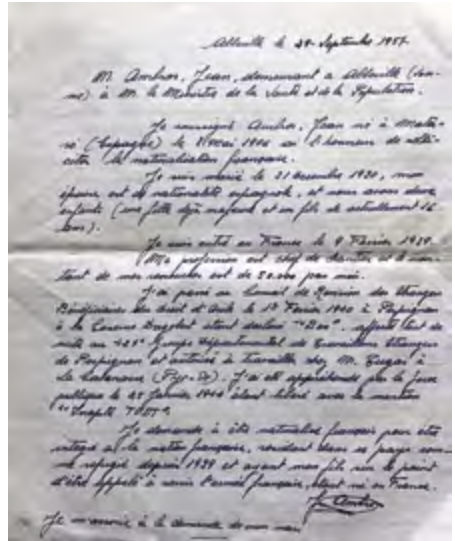 Abbeville le 29 Septembre 1957.
M. Ambros, Jean, demeurant a Abbeville (Som-
me) à M. le Ministre de la Santé et de la Population.
Je soussigné Ambros, Jean né à Mataró
(Espagne) le Mai 1906 ai l'honneur de solli-
citer la naturalisation française.
Je suis marié le 21 décembre 1930, mon
épouse est de nationalité espagnole, et nous avons deux
enfants (une fille déjà majeure et un fils de actuellement 16
ans).
Je suis entré en France le 9 Février 1939.
Ma profession est chef de chantier et le mon-
tant de mes ressources est de 50.000 par moi.
J'ai passé au Conseil de Révision des étrangers
Bénéficiaires du droit d'asile le 1er Février 1940 à Perpignan
à la Caserne étant déclaré "Bon", affecté tout de
suite au Groupe Départemental de Travailleurs étrangers
de Perpignan et autorisé à travailler chez M. à
(Pyr-Or). J'ai été par la
publique le 25 Janvier étant libéré avec la mention
"Inapte
Je demande à être naturalisé français pour être
intégré à la nation française, résidant dans ce pays com-
me réfugié depuis 1939 et ayant mon fils sur le point
d'être appelé à servir l'armée française, étant né en France.
J. Ambros
Je m'associe à la demande de mon mari